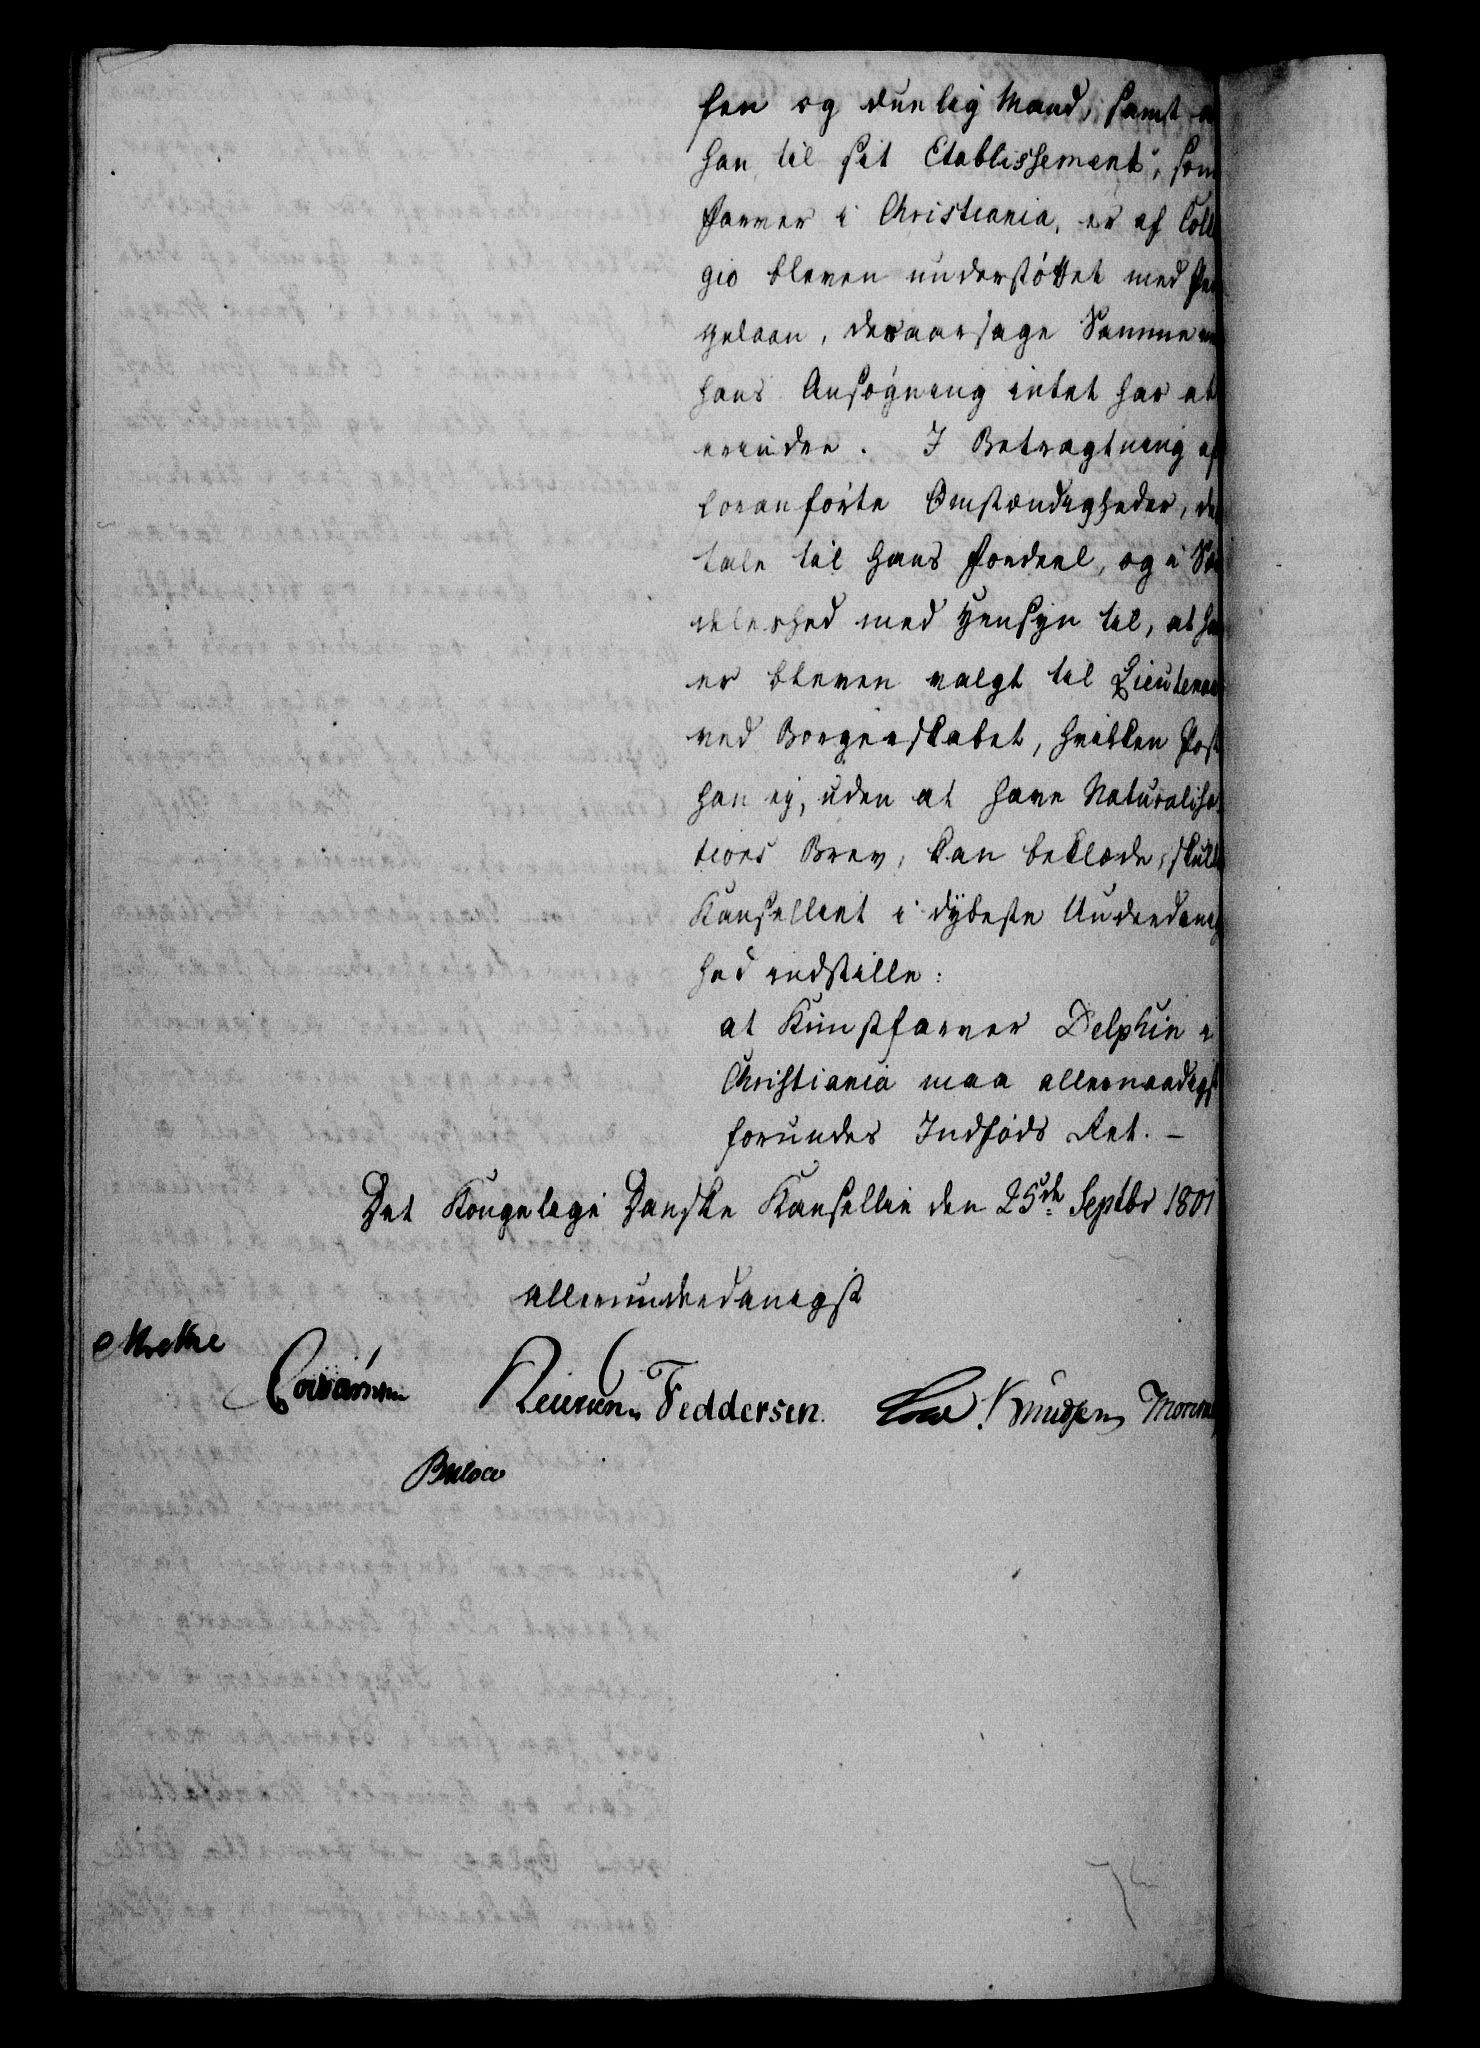 sen og duelig Mand, samt a
han til sit Etablissement, som
Farver i Christiania, er af Colle
gio bleven understøttet med Pen
gelaan, desaarsage Samme
hans Ansøgning intet har at
erindre. I Betragtning af
foranførte Omstændigheder, de
tale til hans Fordeel, og i Sær
deleshed med Hensyn til, at ha
er bleven valgt til Lieutenan
ved Borgerskabet, hvilken Post
han ej, uden at have Naturalisa
tions Brev, kan beklæde, skulle
Kanselliet i dybeste Underdanig
hed indstille:
at Kunstfarver Delphin i
Christiania maa allernaadigst
forundes Indføds Ret. —
Det Kongelige Danske Kansellie den 25de Septbr 1801
allerunderdanigst
Moltke
Feddersen Knudsen Monrad
Bülow